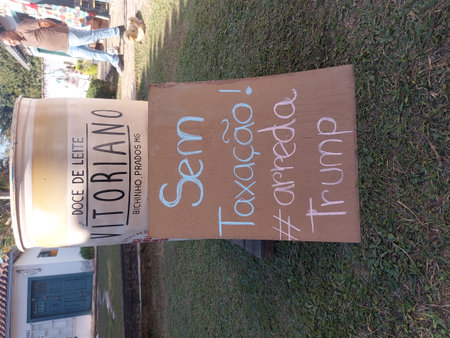 DOCE DE LEITE
VITORIANO
BICHINHO, PRADOS MG
Sem
Taxação!
#arreda
Trump